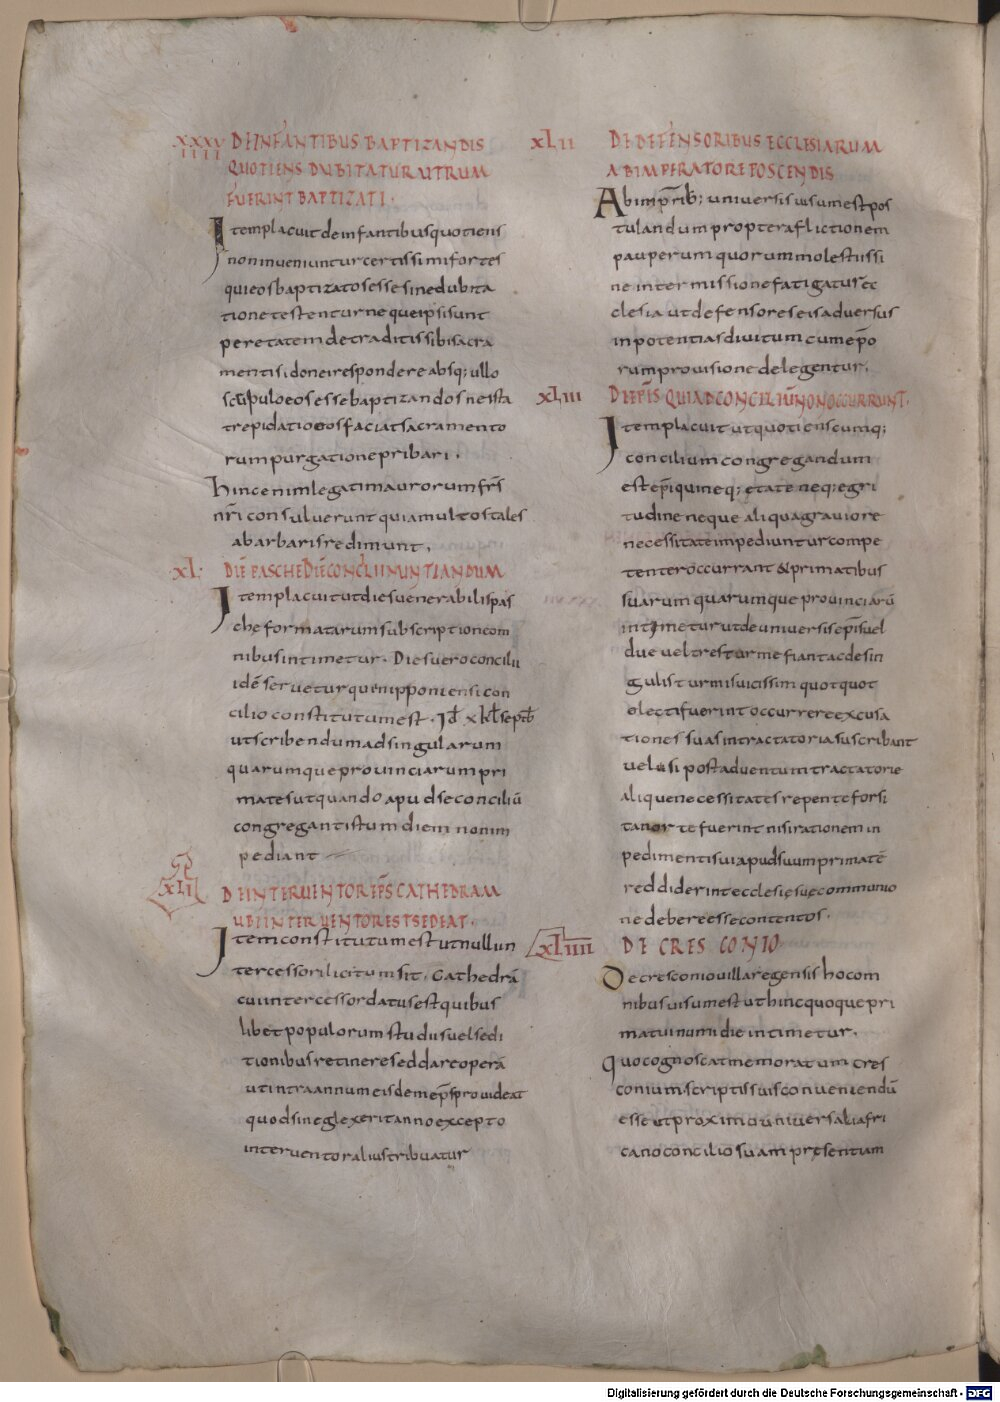 XXXV
IIII
DE INFANTIBUS BAPTIZANDIS
QUOTIENS DUBITATUR UTRUM
FUERINT BAPTIZATI.
Item placuit de infantibus quotiens
non inveniuntur certissimi fortes
qui eos baptizatos esse sine dubita
tione testentur neque ipsi sunt
per etatem de traditis sibi sacra
mentis idonei respondere absq; ullo
scrupulo eos esse baptizandos ne ista
trepidatio eos faciat sacramento
rum purgatione pribari.
hinc enim legati maurorum frs̄
nr̄i consuluerunt quia multos tales
a barbaris redimunt.
XL. DIĒ PASCHE DIĒ CONCILII NUNTIANDUM
Item placuit ut dies uenerabilis pas
che formatarum subscriptione om
nibus intimetur. Dies uero concilii
idē seruetur qui in ipponiensi con
cilio constitutum est. Id x kl septb
ut scribendum ad singularum
quarumque prouinciarum pri
mates ut quando apud se conciliū
congregant istum diem non im
pediant
XLI DE INTERVENTORE EPS CATHEDRAM
UBI INTERVENTOR EST SEDEAT.
Item constitutum est ut null un
tercessori licitum sit. Cathedrā
cui intercessor datus est quibus
libet populorum studus uel sedi
tionibus retinere sed dare operā
ut intra annum eisdem ep̄s prouideat
quod si neglexerit anno excepto
interuentor alius tribuatur
XLII
DE DEFENSORIBUS ECCLESIARUM
AB IMPERATORE POSCENDIS
Ab imp̄rib; uniuersis uisum est pos
tulandum propter aflictionem
pauperum quorum molestiis si
ne intermissione fatigatur ec
clesia ut defensores eis aduersus
inpotentias diuitum cum ep̄o
rum prouisione delegentur.
XLIII DE EP̄IS QUI AD CONCILIŪ NON OCCURRUNT.
Item placuit ut quotienscumq;
concilium congregandum
est ep̄i qui neq; etate neq; egri
tudine neque aliqua grauiore
necessitate impediuntur compe
tenter occurrant & primatibus
suarum quarumque prouinciarū
intimetur ut de uniuersis ep̄is uel
due uel tres turme fiant ac de sin
gulis turmis uicissim quotquot
electi fuerint occurrere excusa
tiones suas in tractatoria suscribant
uel si post aduentum tractatorie
alique necessitates repente forsi
tan orte fuerint nisi rationem in
pedimenti sui apud suum primatē
reddiderint ecclesie sue communio
ne debere esse contentos.
XLIIII DE CRESCONIO
De cresconio uillaregensis hoc om
nibus uisum est ut hinc quoque pri
matui numidie intimetur.
Quo cognoscat memoratum cres
conium scriptis suis conueniendū
esse ut proximo uniuersali afri
cano concilio suam presentum